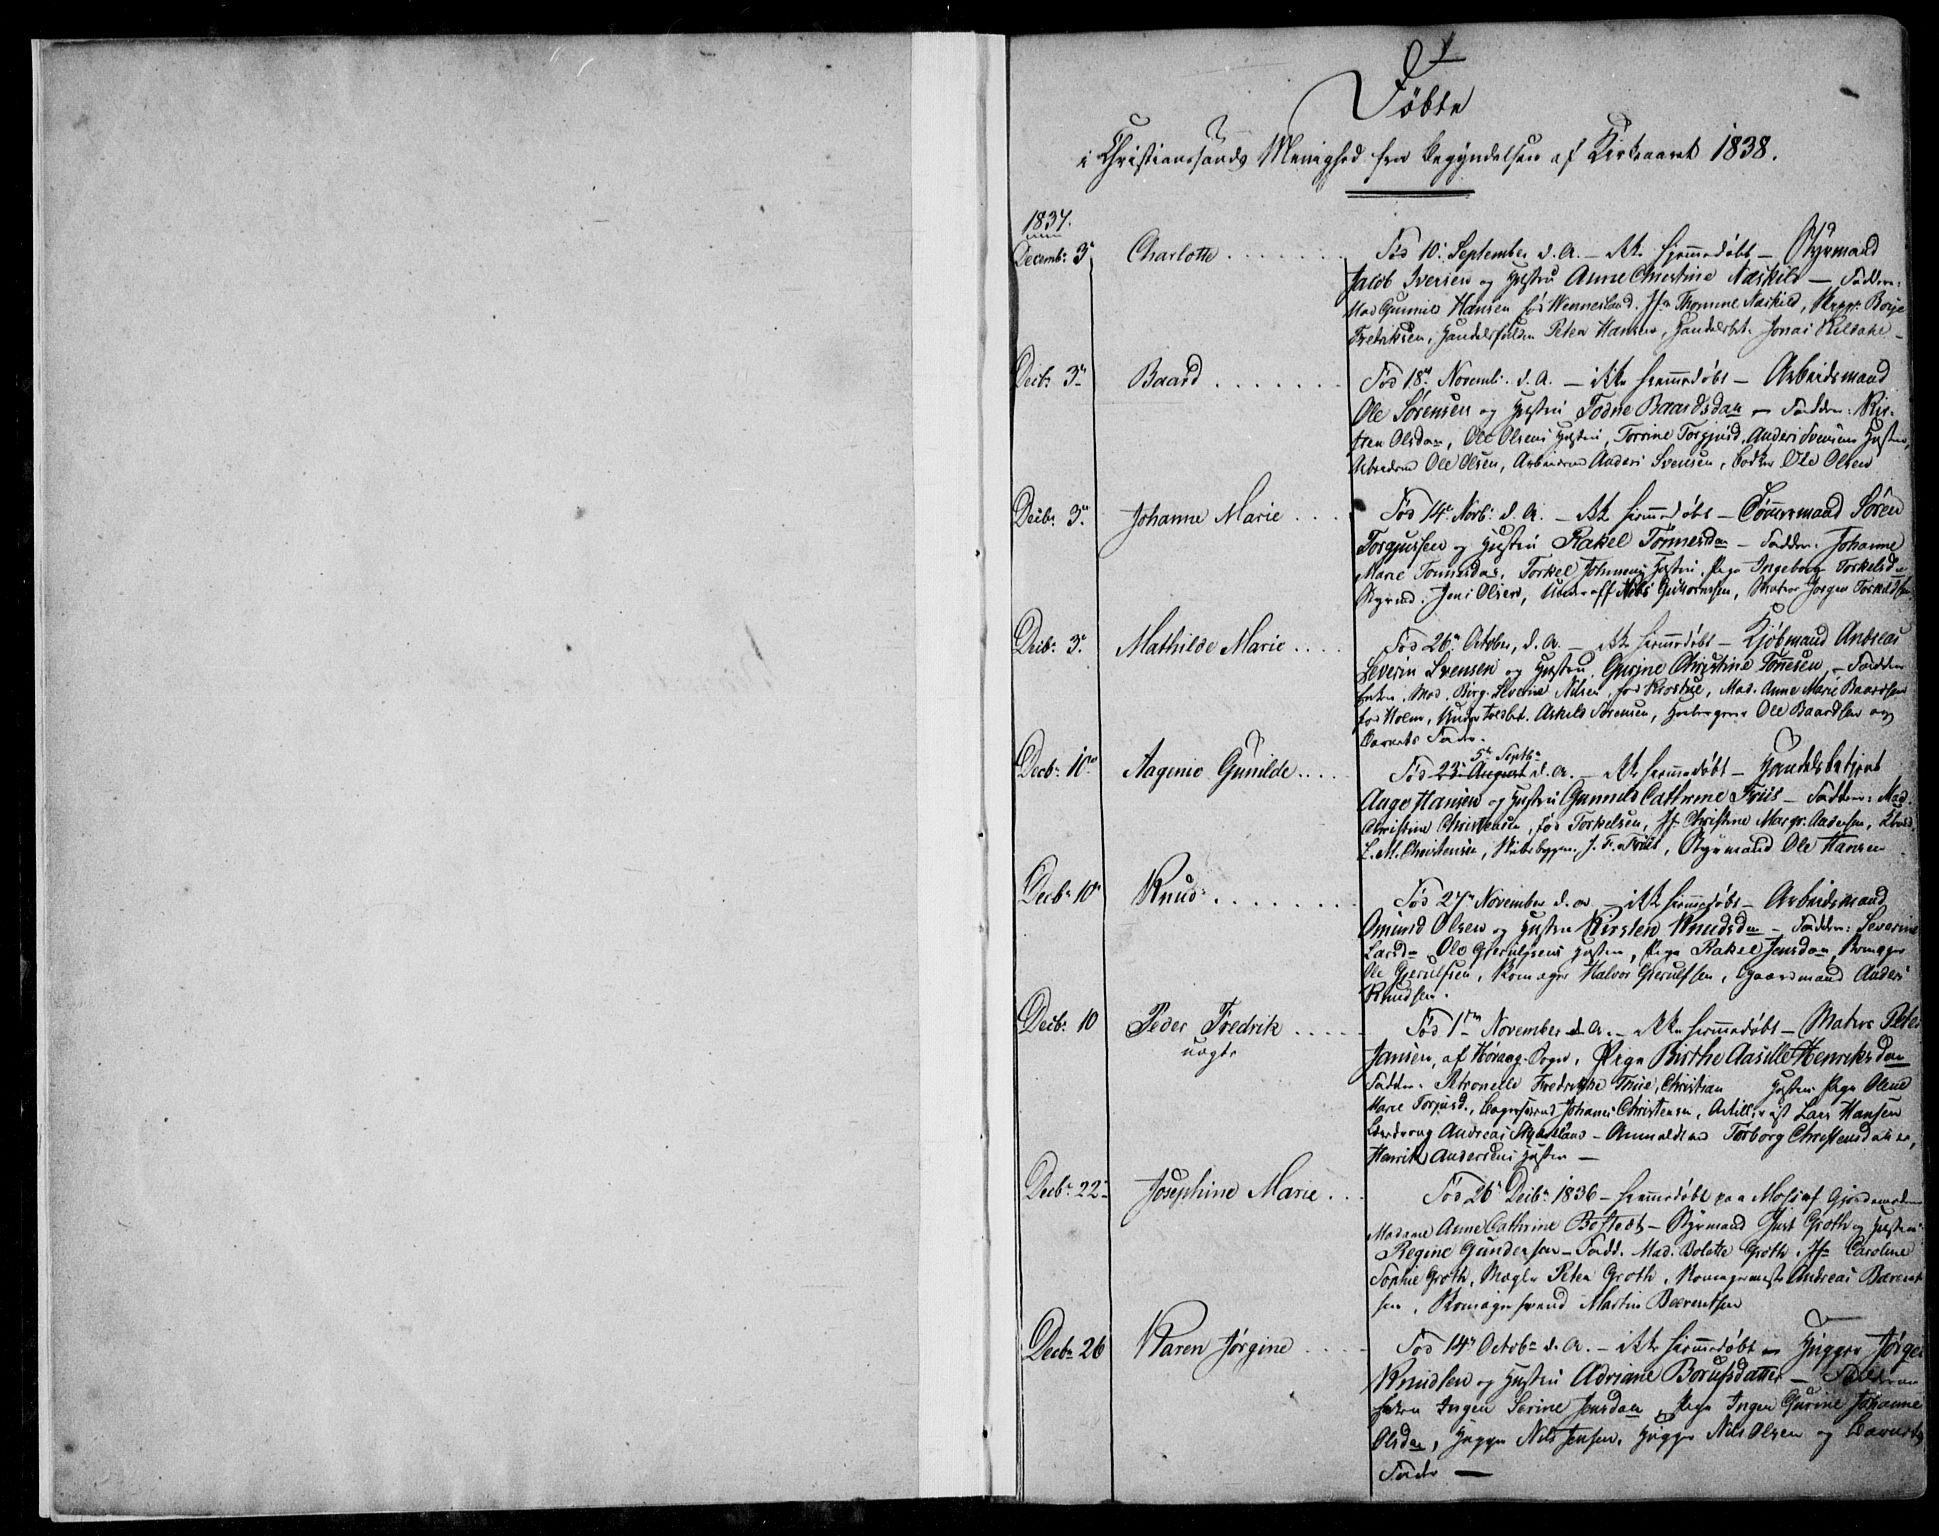 1
Døbte
i Christianssands Menighed fra Begyndelsen af Kirkeaaret 1838.
1837.
Decemb. 3die Charlotte . . . . . . . Fød 10. September d. A. – ikke hjemmedøbt – Styrmand
Jacob Iversen og Hustru Anne Christine Næskild – Faddere:
Mad Gunnild Hansen fød Wennesland. Jfr Thomine Næskild, Skipp. Børje
Fredriksen, Peter Hansen, Jonas Kilsake –
Decbr 3die Baard . . . . . . . Fød 18de Novembr. d. A. – ikke hjemmedøbt – Arbeidsmand
Ole Sørensen og Hustru Todne Baardsdatter – Faddere: Kir-
sten Olsdatter, Ole Olsens Hustru, Torrine Torgjusd. Anders Svensens Hustru,
Arbeidsmd Ole Olsen, Arbeidsmd Anders Svensen, Ole Olsen
Decbr 3die Johanne Marie . . . . Fød 14de Novbr. d. A. – ikke hjemmedøbt – Tømmermand Søren
Torgjussen og Hustru Rakel Tørmersdatter – Faddere: Johanne
Marie Tønnesdatter, Torkel Hustru, Pige Ingeborg Torkelsdr
Styrmd. Jens Olsen, Underoff Nils Matros Jørgen
Decbr 3die Mathilde Marie . . . . Fød 26de October, d. A. – ikke hjemmedøbt – Kjøbmand Andreas
Severin Svensen og Hustru Gurine Christine Tønnesen, – Faddere
Enken, Mad. Birg. Severine Nilsen, fød Mad. Anne Marie Baardsen
fød Holm, Under Toldbet. Askild Sørensen, Ole Baardsen og
Barnets Fader.
5te Septbr
Decbr 10de Aagenie Gunilde . . . . Fød 23de August d. A. – ikke hjemmedøbt – Handelsbetjent
Aage Hansen og Hustru Gunnild Cathrine Friis – Faddere: Mad.
Christine Christensen, fød Torkelsen, Jfr Christine Margr. Andersen,
L. M. Christensen, Skibsbygger J. F. Friis, Styrmand Ole Hansen
Decbr 10de Knud . . . . . . . Fød 27de November d. A. – ikke hjemmedøbt – Arbeidsmand
Omund Olsen og Hustru Kirsten Knudsdr – Faddere: Severine
Larsdr Ole Gjerulfsens Hustru, Pige Rakel Jensdatter,
Ole Gjerulfsen, Halvor Gjerulfsen, Gaardmand Anders
Knudsen.
Decbr 10 Peder Fredrik . . . . Fød 1ste November d. A. – ikke hjemmedøbt – Matros Peter
uægte Jansen, af Sogn, Pige Birthe Aasille Henriksdatter
Faddere: Petronelle Fredrikke Friie, Christian Hustru, Pige Olene
Marie Torjusd., Johannes Christensen, Artillerist Lars Hansen
Andreas – Anmeldt ved Torborg Christensdatter,
Henrik Andersens Hustru –
Decbr 22de Josephine Marie . . . Fød 26de Decbr 1836 – hjemmedøbt paa Mosø af Gjordemoder
Madame Anne Cathrine – Styrmand Just Groth og Hustru
Regine Gundersen – Fadd. Mad. Bolette Groth, Jfr Caroline
Sophie Groth, Mægler Peter Groth, Andreas Bærent-
sen, Martin Bærentsen
Decbr 26 Karen Jørgine . . . . Fød 14de Octobr d. A. – ikke hjemmedøbt – Jørgen
Knudsen og Hustru Adriane Borufsdatter – Faddere
Enken Ingen Serine Jensdatter, Pige Ingen Gurine Johanne
Olsdatter, Nils Jensen, Nils Olsen og Barnets
Fader –